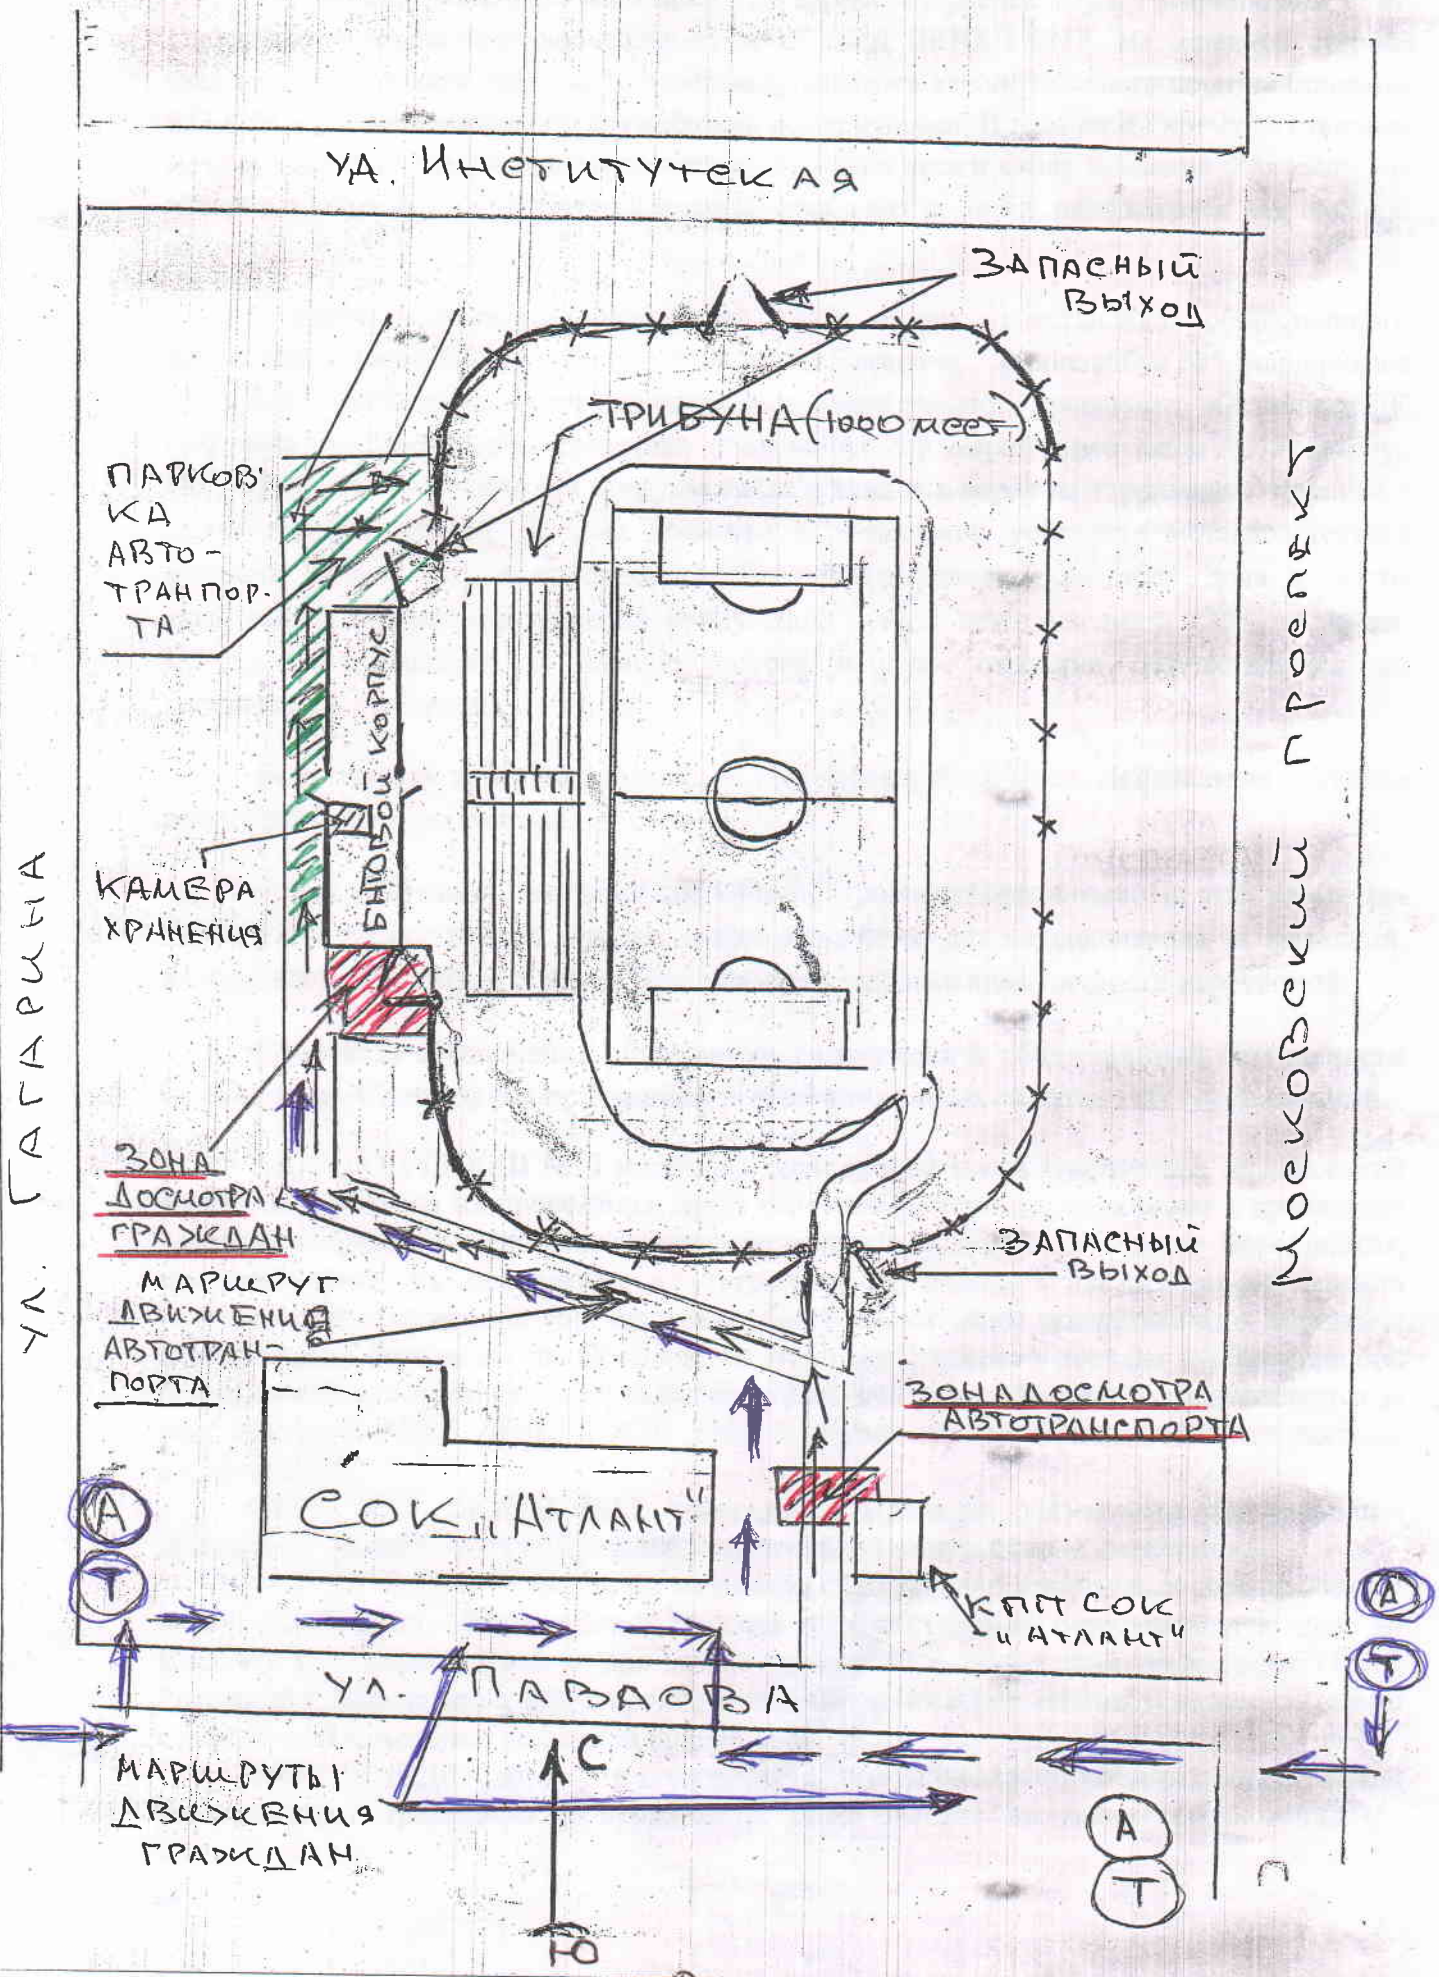 УЛ. ИНСТИТУТСКАЯ
ЗАПАСНЫЙ
ВЫХОД
ТРИБУНА (1000 МЕСТ)
ПАРКОВ-
КА
АВТО-
ТРАНПОР-
ТА
БЫТОВОЙ КОРПУС
КАМЕРА
ХРАНЕНИЯ
УЛ. ГАГАРИНА
МОСКОВСКИЙ ПРОСПЕКТ
ЗОНА
ДОСМОТРА
ГРАЖДАН
МАРШРУТ
ДВИЖЕНИЯ
АВТОТРАН-
ПОРТА
ЗАПАСНЫЙ
ВЫХОД
ЗОНА ДОСМОТРА
АВТОТРАНСПОРТА
СОК „АТЛАНТ"
КПП СОК
"АТЛАНТ"
А
Т
А
Т
УЛ. ПАВЛОВА
МАРШРУТЫ
ДВИЖЕНИЯ
ГРАЖДАН
С
Ю
А
Т